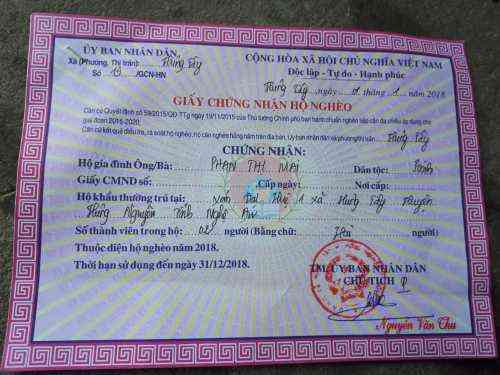 ỦY BAN NHÂN DÂN
Xã (Phường, Thị trấn): Hưng Tây
Số 19 /GCN-HN
CỘNG HÒA XÃ HỘI CHỦ NGHĨA VIỆT NAM
Độc lập - Tự do - Hạnh phúc
Hưng Tây, ngày 01 tháng 1 năm 2018
GIẤY CHỨNG NHẬN HỘ NGHÈO
Căn cứ Quyết định số 59/2015/QĐ-TTg ngày 19/11/2015 của Thủ tướng Chính phủ ban hành chuẩn nghèo tiếp cận đa chiều áp dụng cho
giai đoạn 2016-2020;
Căn cứ kết quả điều tra, rà soát hộ nghèo, hộ cận nghèo hằng năm trên địa bàn, Ủy ban nhân dân xã/phường/thị trấn Hưng Tây
CHỨNG NHẬN:
Hộ gia đình Ông/Bà: PHAN THỊ MAI Dân tộc: Kinh
Giấy CMND số: Cấp ngày: Nơi cấp:
Hộ khẩu thường trú tại: Xóm Đại Huệ 1 xã Hưng Tây Huyện
Hưng Nguyên Tỉnh Nghệ An
Số thành viên trong hộ: 02 người (Bằng chữ: Hai người)
Thuộc diện hộ nghèo năm 2018.
Thời hạn sử dụng đến ngày 31/12/2018.
TM. ỦY BAN NHÂN DÂN
CHỦ TỊCH
Nguyễn Văn Thu